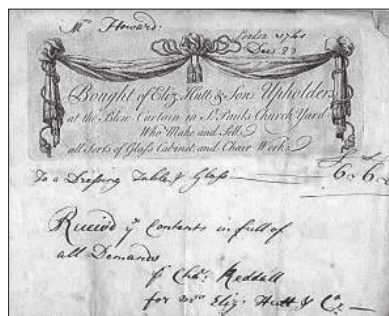 Mrs Howard
London 1741
Decr 23
Bought of Eliz. Hutt & Son Upholders
at the Blew Curtain in St. Paul's Church Yard
Who Make and Sell
all Sorts of Glass Cabinet and Chair Work
To a Dressing Table & Glass — 6 6
Receivd ye Contents in full of
all Demands
pr Chas: Reddall
for Mrs Eliz: Hutt & Co: